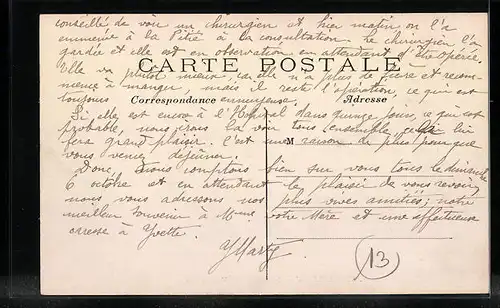 conseillé de voir un chirurgien et hier matin on l'a
emmenée à la Pitié à la consultation. Le chirurgien l'a
gardée et elle est en observation en attendant d'être opérée.
Elle va plutôt mieux, car elle n'a plus de fièvre et recom-
CARTE POSTALE
mence à manger, mais il reste l'opération, ce qui est
toujours ennuyeuse.
Correspondance
Adresse
Si elle est encore à l'Hôpital dans quinze jours, ce qui est
probable, nous irons la voir tous ensemble, cela lui
fera grand plaisir. C'est une raison de plus pour que
M
vous veniez déjeuner.
Donc, nous comptons bien sur vous tous le dimanche
6 octobre et en attendant le plaisir de vous revoir,
nous vous adressons nos plus vives amitiés; notre
meilleur souvenir à Mme votre Mère et une affectueuse
caresse à Yvette.
13